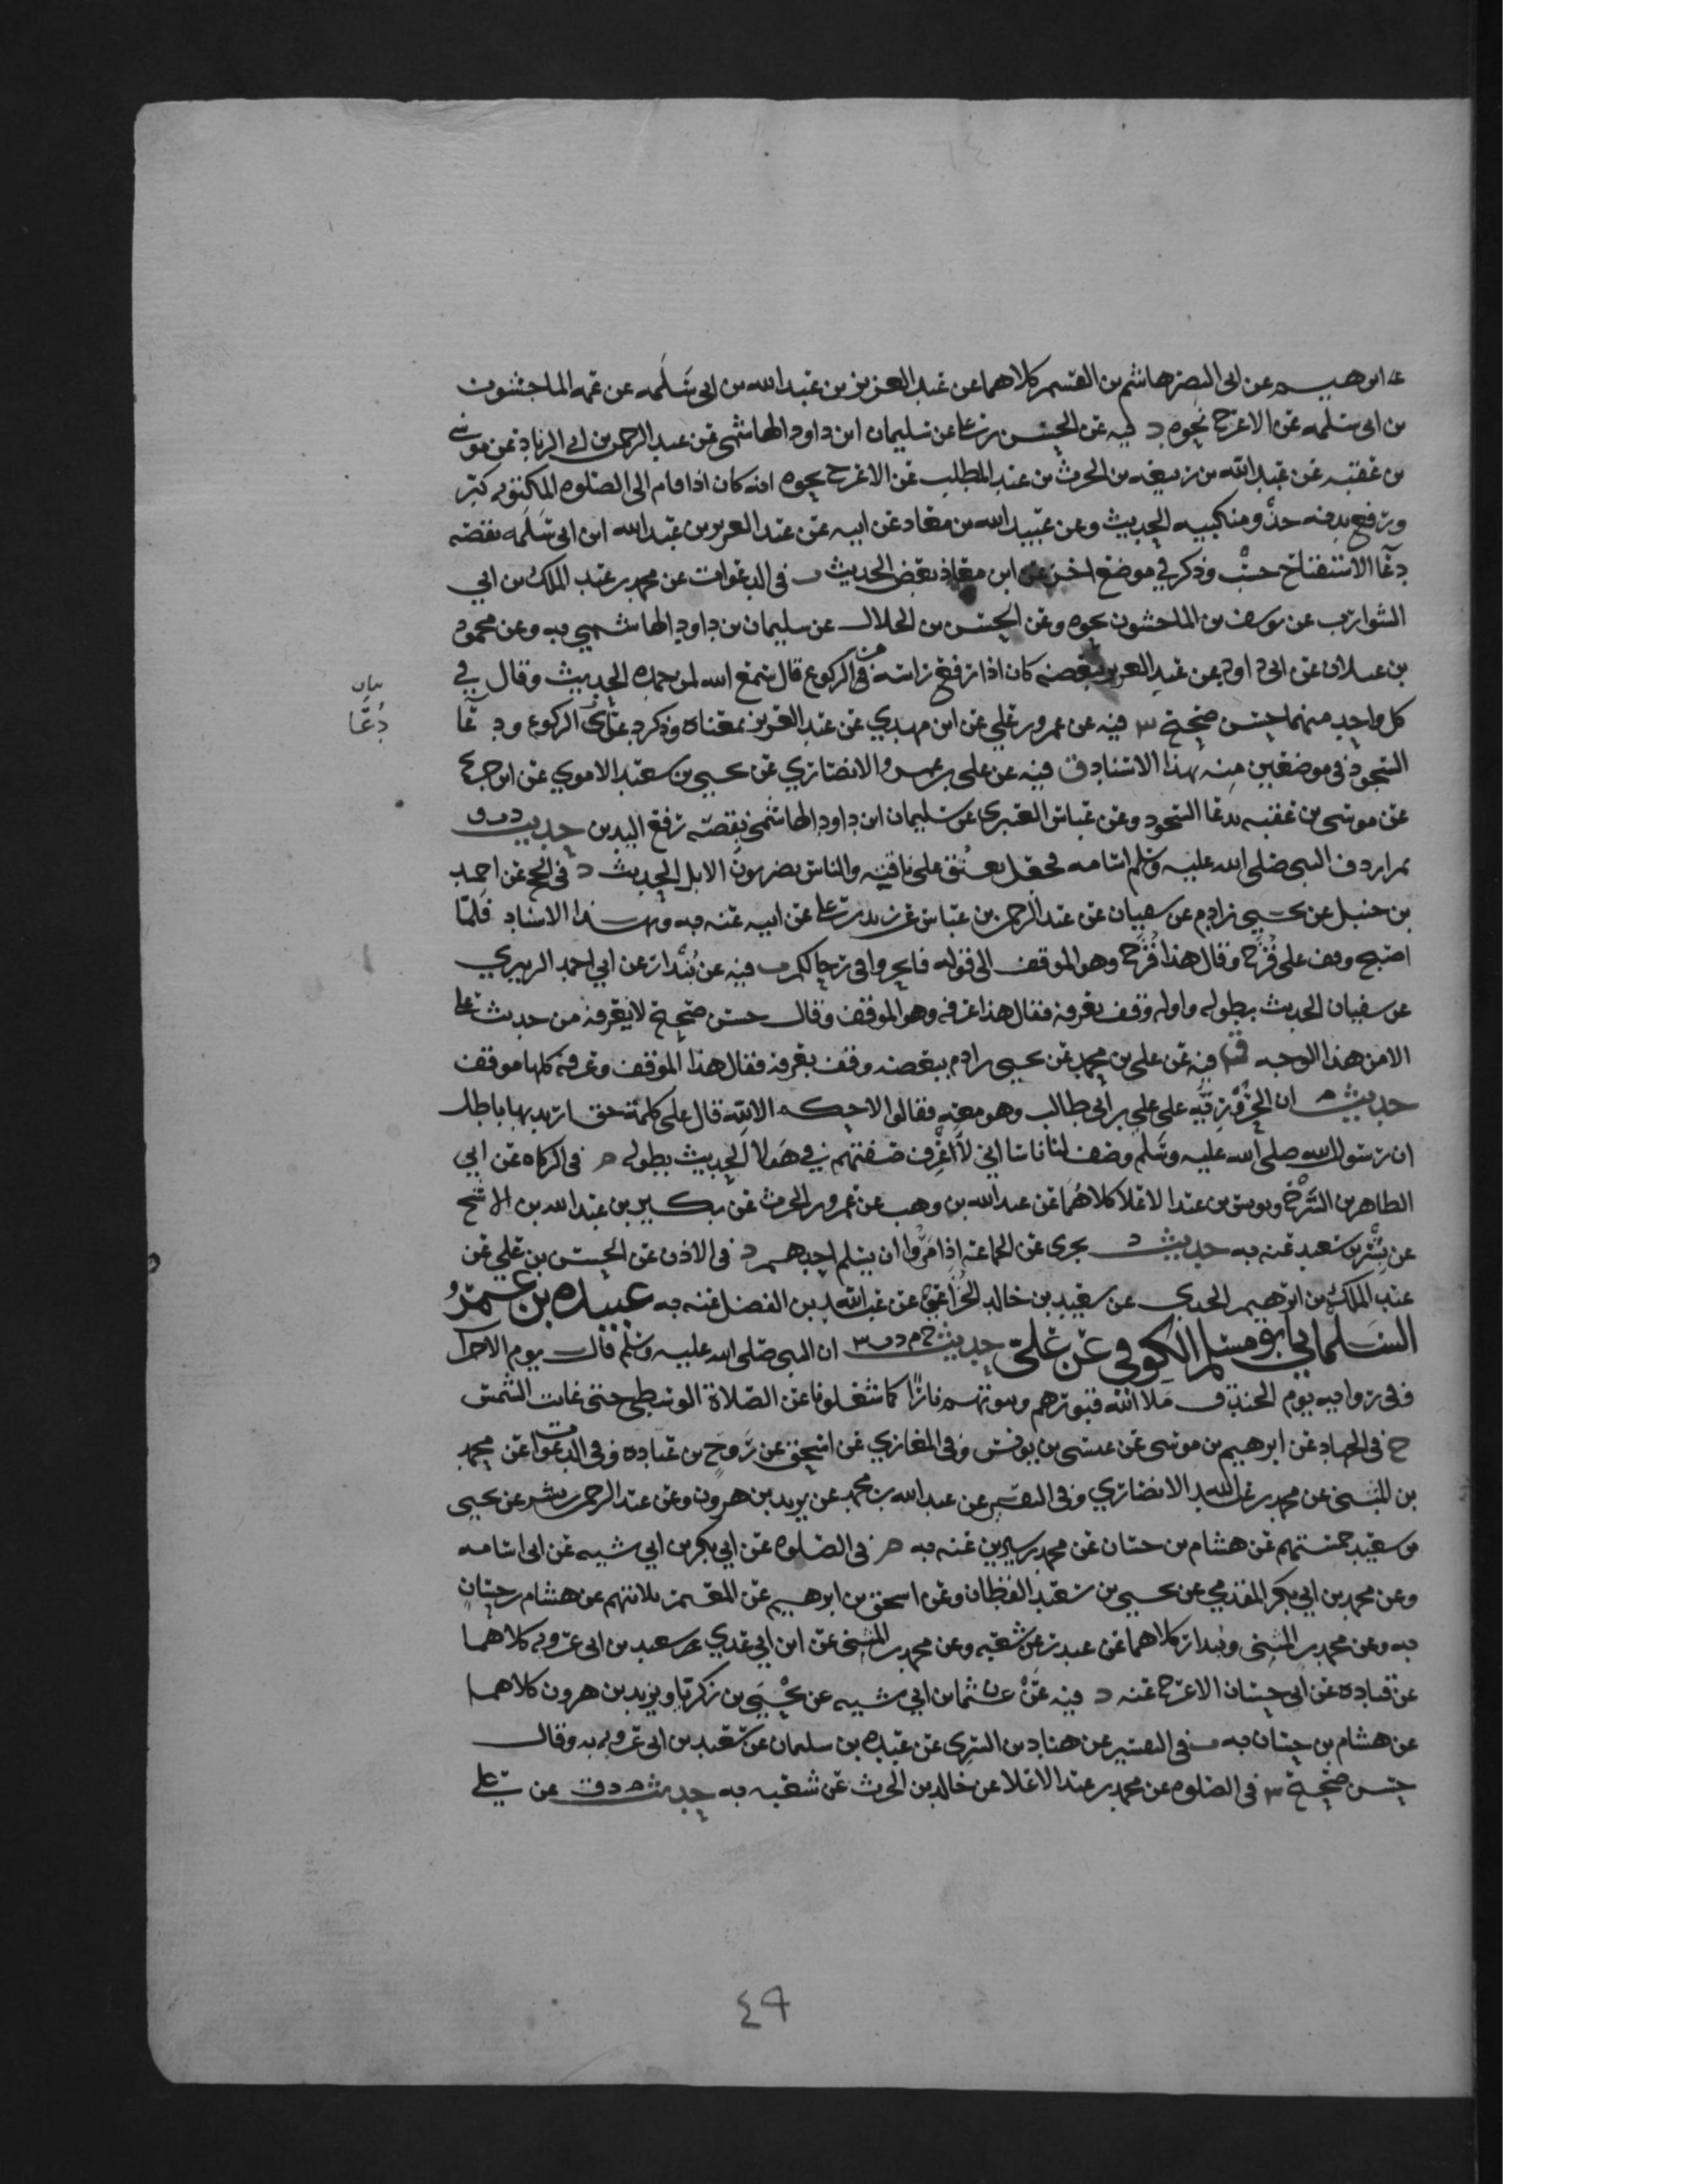 بن ابرهيم عن ابي النضر هاشم بن القسم كلاهما عن عبد العزيز بن عبد الله بن ابي سلمه عن عمه الماجشون
بن ابي سلمه عن الاعرج نحوه د فيه عن الحسن بن علي عن سليمان ابن داود الهاشمي عن عبد الرحمن بن ابي الزناد عن موسى
بن عقبه عن عبد الله بن ربيعه بن الحرث بن عبد المطلب عن الاعرج نحوه انه كان اذا قام الى الصلوه المكتوبه كبر
ورفع يديه حذو منكبيه الحديث وعن عبيد الله بن معاذ عن ابيه عن عبد العزيز بن عبد الله ابن ابي سلمه بقصه
دعا الاستفتاح حسب وذكر في موضع اخر عن ابن معاذ بعض الحديث ت في الدعوات عن محمد بن عبد الملك بن ابي
الشوارب عن يوسف بن الماجشون نحوه وعن الحسن بن الخلال عن سليمان بن داود الهاشمي به وعن محمود
بن غيلان عن ابي داود عن عبد العزيز ببعضه كان اذا رفع راسه من الركوع قال سمع الله لمن حمده الحديث وقال في
كل واحد منهما حسن صحيح س فيه عن عمرو بن علي عن ابن مهدي عن عبد العزيز بمعناه وذكر دعاى الركوع ودعا
السجود في موضعين منه بهذا الاسناد ق فيه عن علي بن عمرو الانصاري عن يحيى بن سعيد الاموي عن ابن جريج
عن موسى بن عقبه بدعا السجود وعن عباس العنبري عن سليمان ابن داود الهاشمي بقصه رفع اليدين حديث د ت ق
ثم اردف النبي صلى الله عليه وسلم اسامه فجعل يعنق على ناقته والناس يضربون الابل الحديث د في الحج عن احمد
بن حنبل عن يحيى بن ادم عن سفيان عن عبد الرحمن بن عباس عن زيد بن علي عن ابيه عنه به وبهذا الاسناد فلما
اصبح وقف على قزح وقال هذا قزح وهو الموقف الى قوله فانحروا في رحالكم ت فيه عن بندار عن ابي احمد الزبيري
عن سفيان الحديث بطوله واوله وقف بعرفه فقال هذا عرفه وهو الموقف وقال حسن صحيح لا نعرفه من حديث علي
الا من هذا الوجه ق فيه عن علي بن محمد عن يحيى بن ادم ببعضه وقف بعرفه فقال هذا الموقف وعرفه كلها موقف
حديث م ان الحروريه على علي بن ابي طالب وهو معه فقالوا لا حكم الا لله قال علي كلمة حق اريد بها باطل
ان رسول الله صلى الله عليه وسلم وصف لنا ناسا اني لاعرف صفتهم في هولا الحديث بطوله م في الزكاه عن ابي
الطاهر بن السرح ويونس بن عبد الاعلا كلاهما عن عبد الله بن وهب عن عمرو بن الحرث عن بكير بن عبد الله بن الاشج
عن بسر بن سعيد عنه به حديث د يجزى عن الجماعه اذا مروا ان يسلم احدهم د في الادب عن الحسن بن علي عن
عبد الملك بن ابرهيم الجدي عن سعيد بن خالد الخزاعي عن عبد الله بن الفضل عنه به عبيده بن عمرو
السلماني ابو مسلم الكوفي عن علي حديث خ م د ت س ان النبي صلى الله عليه وسلم قال يوم الاحزاب
وفي روايه يوم الخندق ملا الله قبورهم وبيوتهم نارا كما شغلونا عن الصلاة الوسطى حتى غابت الشمس
خ في الجهاد عن ابرهيم بن موسى عن عيسى بن يونس وفي المغازي عن اسحق عن روح بن عباده وفي الدعوات عن محمد
بن المثنى عن محمد بن عبد الله الانصاري وفي التفسير عن عبد الله بن محمد عن يزيد بن هرون وعن عبد الرحمن بن بشر عن يحيى
بن سعيد خمستهم عن هشام بن حسان عن محمد بن سيرين عنه به م في الصلوه عن ابي بكر بن ابي شيبه عن ابي اسامه
وعن محمد بن ابي بكر المقدمي عن يحيى بن سعيد القطان وعن اسحق بن ابرهيم عن المعتمر ثلاثتهم عن هشام بن حسان
به وعن محمد بن المثنى وبندار كلاهما عن غندر عن شعبه وعن محمد بن المثنى عن ابن ابي عدي عن سعيد بن ابي عروبه كلاهما
عن قتاده عن ابي حسان الاعرج عنه د فيه عن عثمان ابن ابي شيبه عن يحيى بن زكريا ويزيد بن هرون كلاهما
عن هشام بن حسان به ت في التفسير عن هناد بن السري عن عبده بن سليمان عن سعيد بن ابي عروبه به وقال
حسن صحيح س في الصلوه عن محمد بن عبد الاعلا عن خالد بن الحرث عن شعبه به حديث م د ق عن علي
بيان
دعا
٤٩